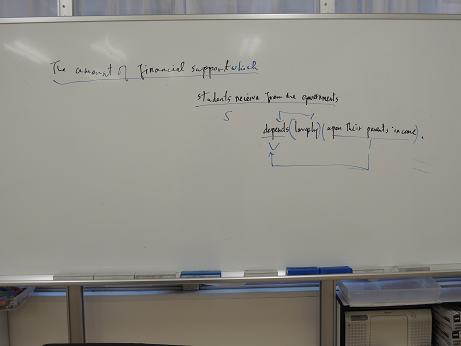 The amount of financial support which
students receive from the governments
S
depends (largely) (upon their parents income).
V